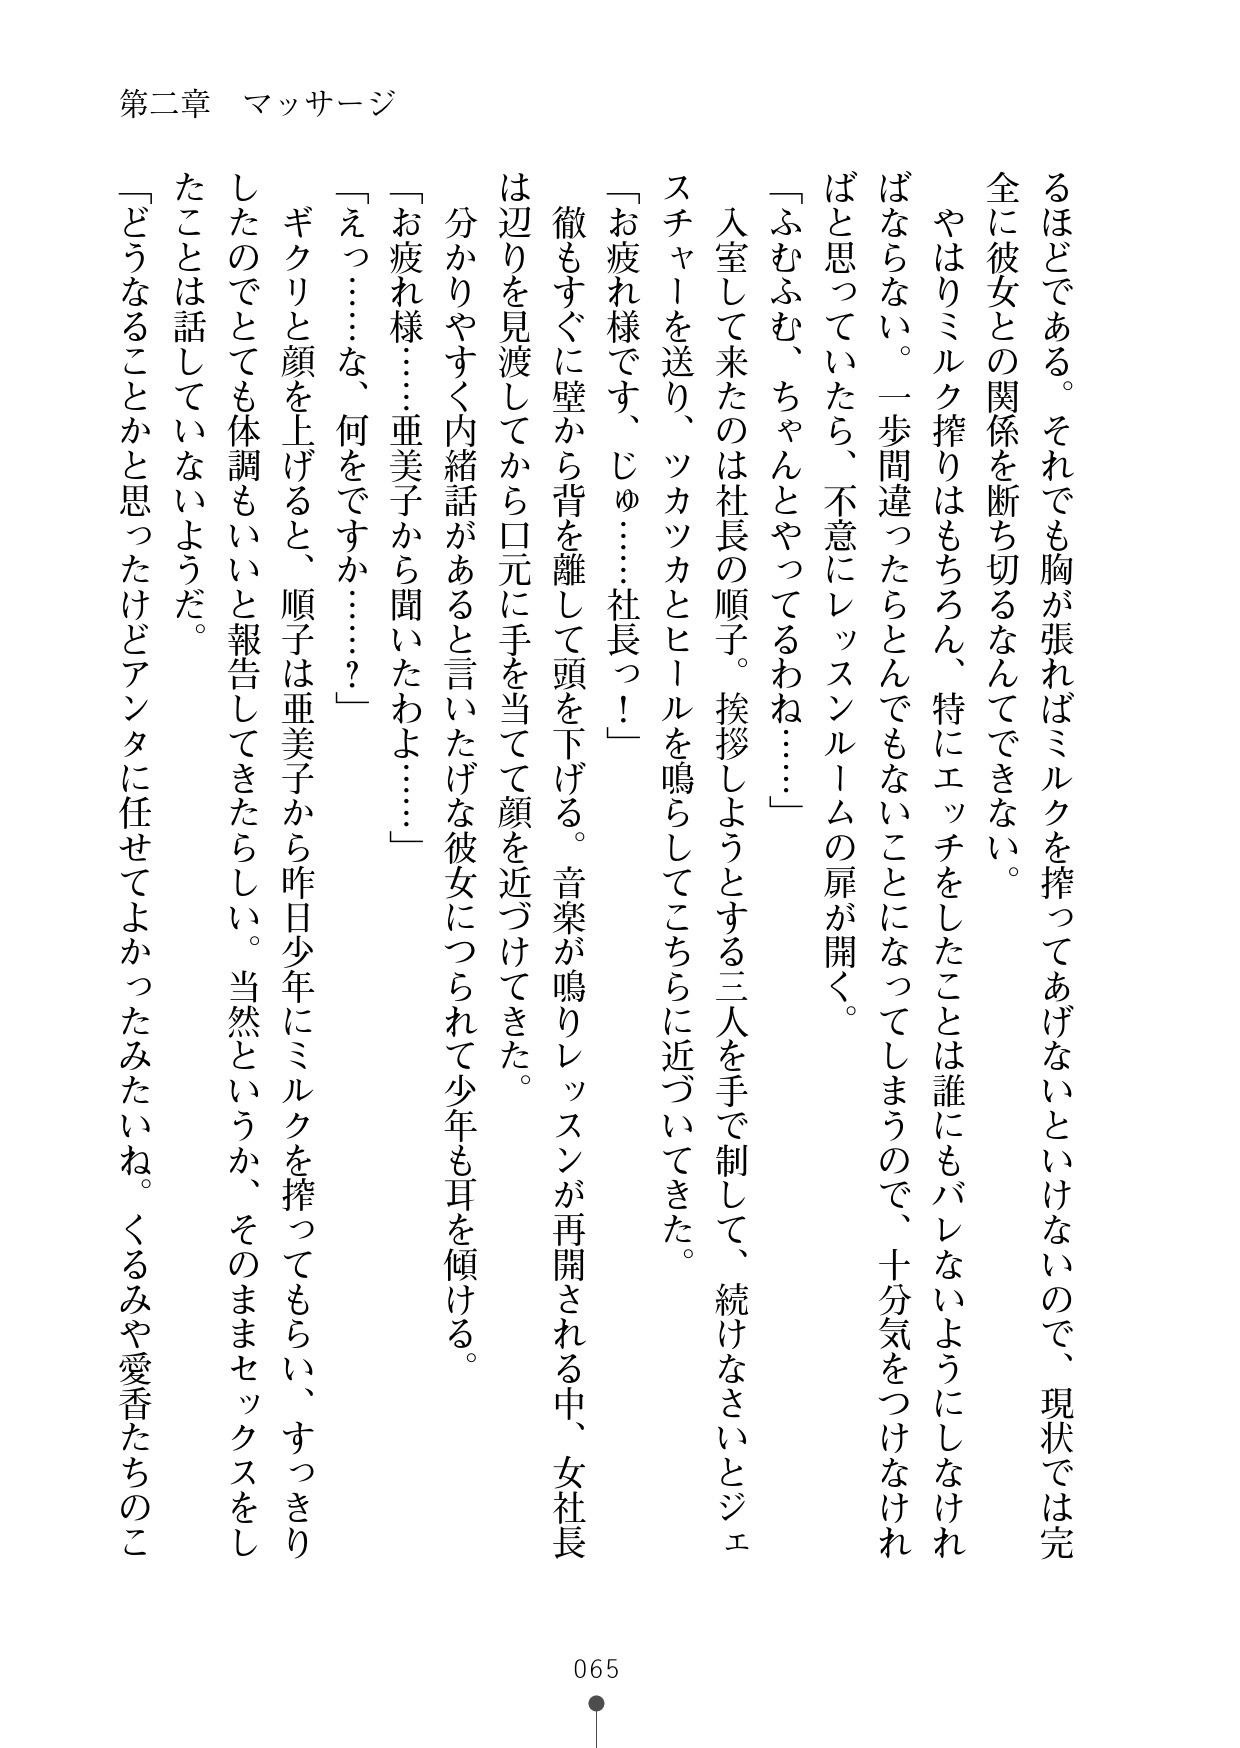 第二章　マッサージ
るほどである。それでも胸が張ればミルクを搾ってあげないといけないので、現状では完
全に彼女との関係を断ち切るなんてできない。
　やはりミルク搾りはもちろん、特にエッチをしたことは誰にもバレないようにしなけれ
ばならない。一歩間違ったらとんでもないことになってしまうので、十分気をつけなけれ
ばと思っていたら、不意にレッスンルームの扉が開く。
「ふむふむ、ちゃんとやってるわね……」
　入室して来たのは社長の順子。挨拶しようとする三人を手で制して、続けなさいとジェ
スチャーを送り、ツカツカとヒールを鳴らしてこちらに近づいてきた。
「お疲れ様です、じゅ……社長っ！」
　徹もすぐに壁から背を離して頭を下げる。音楽が鳴りレッスンが再開される中、女社長
は辺りを見渡してから口元に手を当てて顔を近づけてきた。
　分かりやすく内緒話があると言いたげな彼女につられて少年も耳を傾ける。
「お疲れ様……亜美子から聞いたわよ……」
「えっ……な、何をですか……？」
　ギクリと顔を上げると、順子は亜美子から昨日少年にミルクを搾ってもらい、すっきり
したのでとても体調もいいと報告してきたらしい。当然というか、そのままセックスをし
たことは話していないようだ。
「どうなることかと思ったけどアンタに任せてよかったみたいね。くるみや愛香たちのこ
065